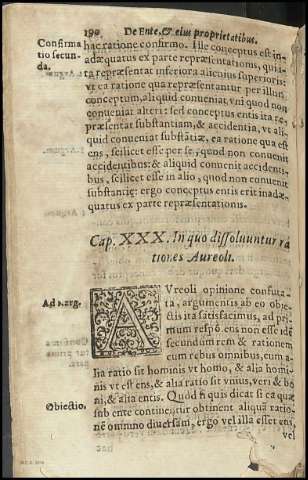 190 De Ente, & eius proprietatibus.
Confirma
tio secun-
da.
hac ratione confirmo. Ille conceptus est in-
adæquatus ex parte repræsentationis, qui i-
ta repræsentat inferiora alicuius superioris:
vt ea ratione qua repræsentantur per illum
conceptum, aliquid conueniat vni quod non
conueniat alteri: sed conceptus entis ita re-
præsentat substantiam, & accidentia, vt ali-
quid conueniat substãtiæ, ea ratione qua est
ens, scilicet esse per se, quod non conuenit
accidentibus: & aliquid conuenit accidenti-
bus, scilicet esse in alio, quod non conuenit
substantiæ: ergo conceptus entis erit inadæ-
quatus ex parte repræsentationis.
Cap. XXX. In quo dissoluuntur ra
tiones Aureoli.
Ad 1. arg.
AVreoli opinione confuta-
ta, argumentis ab eo obie-
ctis ita satisfacimus, ad pri-
mum respõ. ens non esse idẽ
secundum rem & rationem
cum rebus omnibus, cum a-
lia ratio sit hominis vt homo, & alia homi-
nis vt est ens, & alia ratio sit vnius, veri & bo
ni, & alia entis. Quod si quis dicat si ea quæ
Obiectio.
sub ente continẽtur obtinent aliquã ratio-
nẽ omnino diuersam, ergo vel illa esset ens,
vel